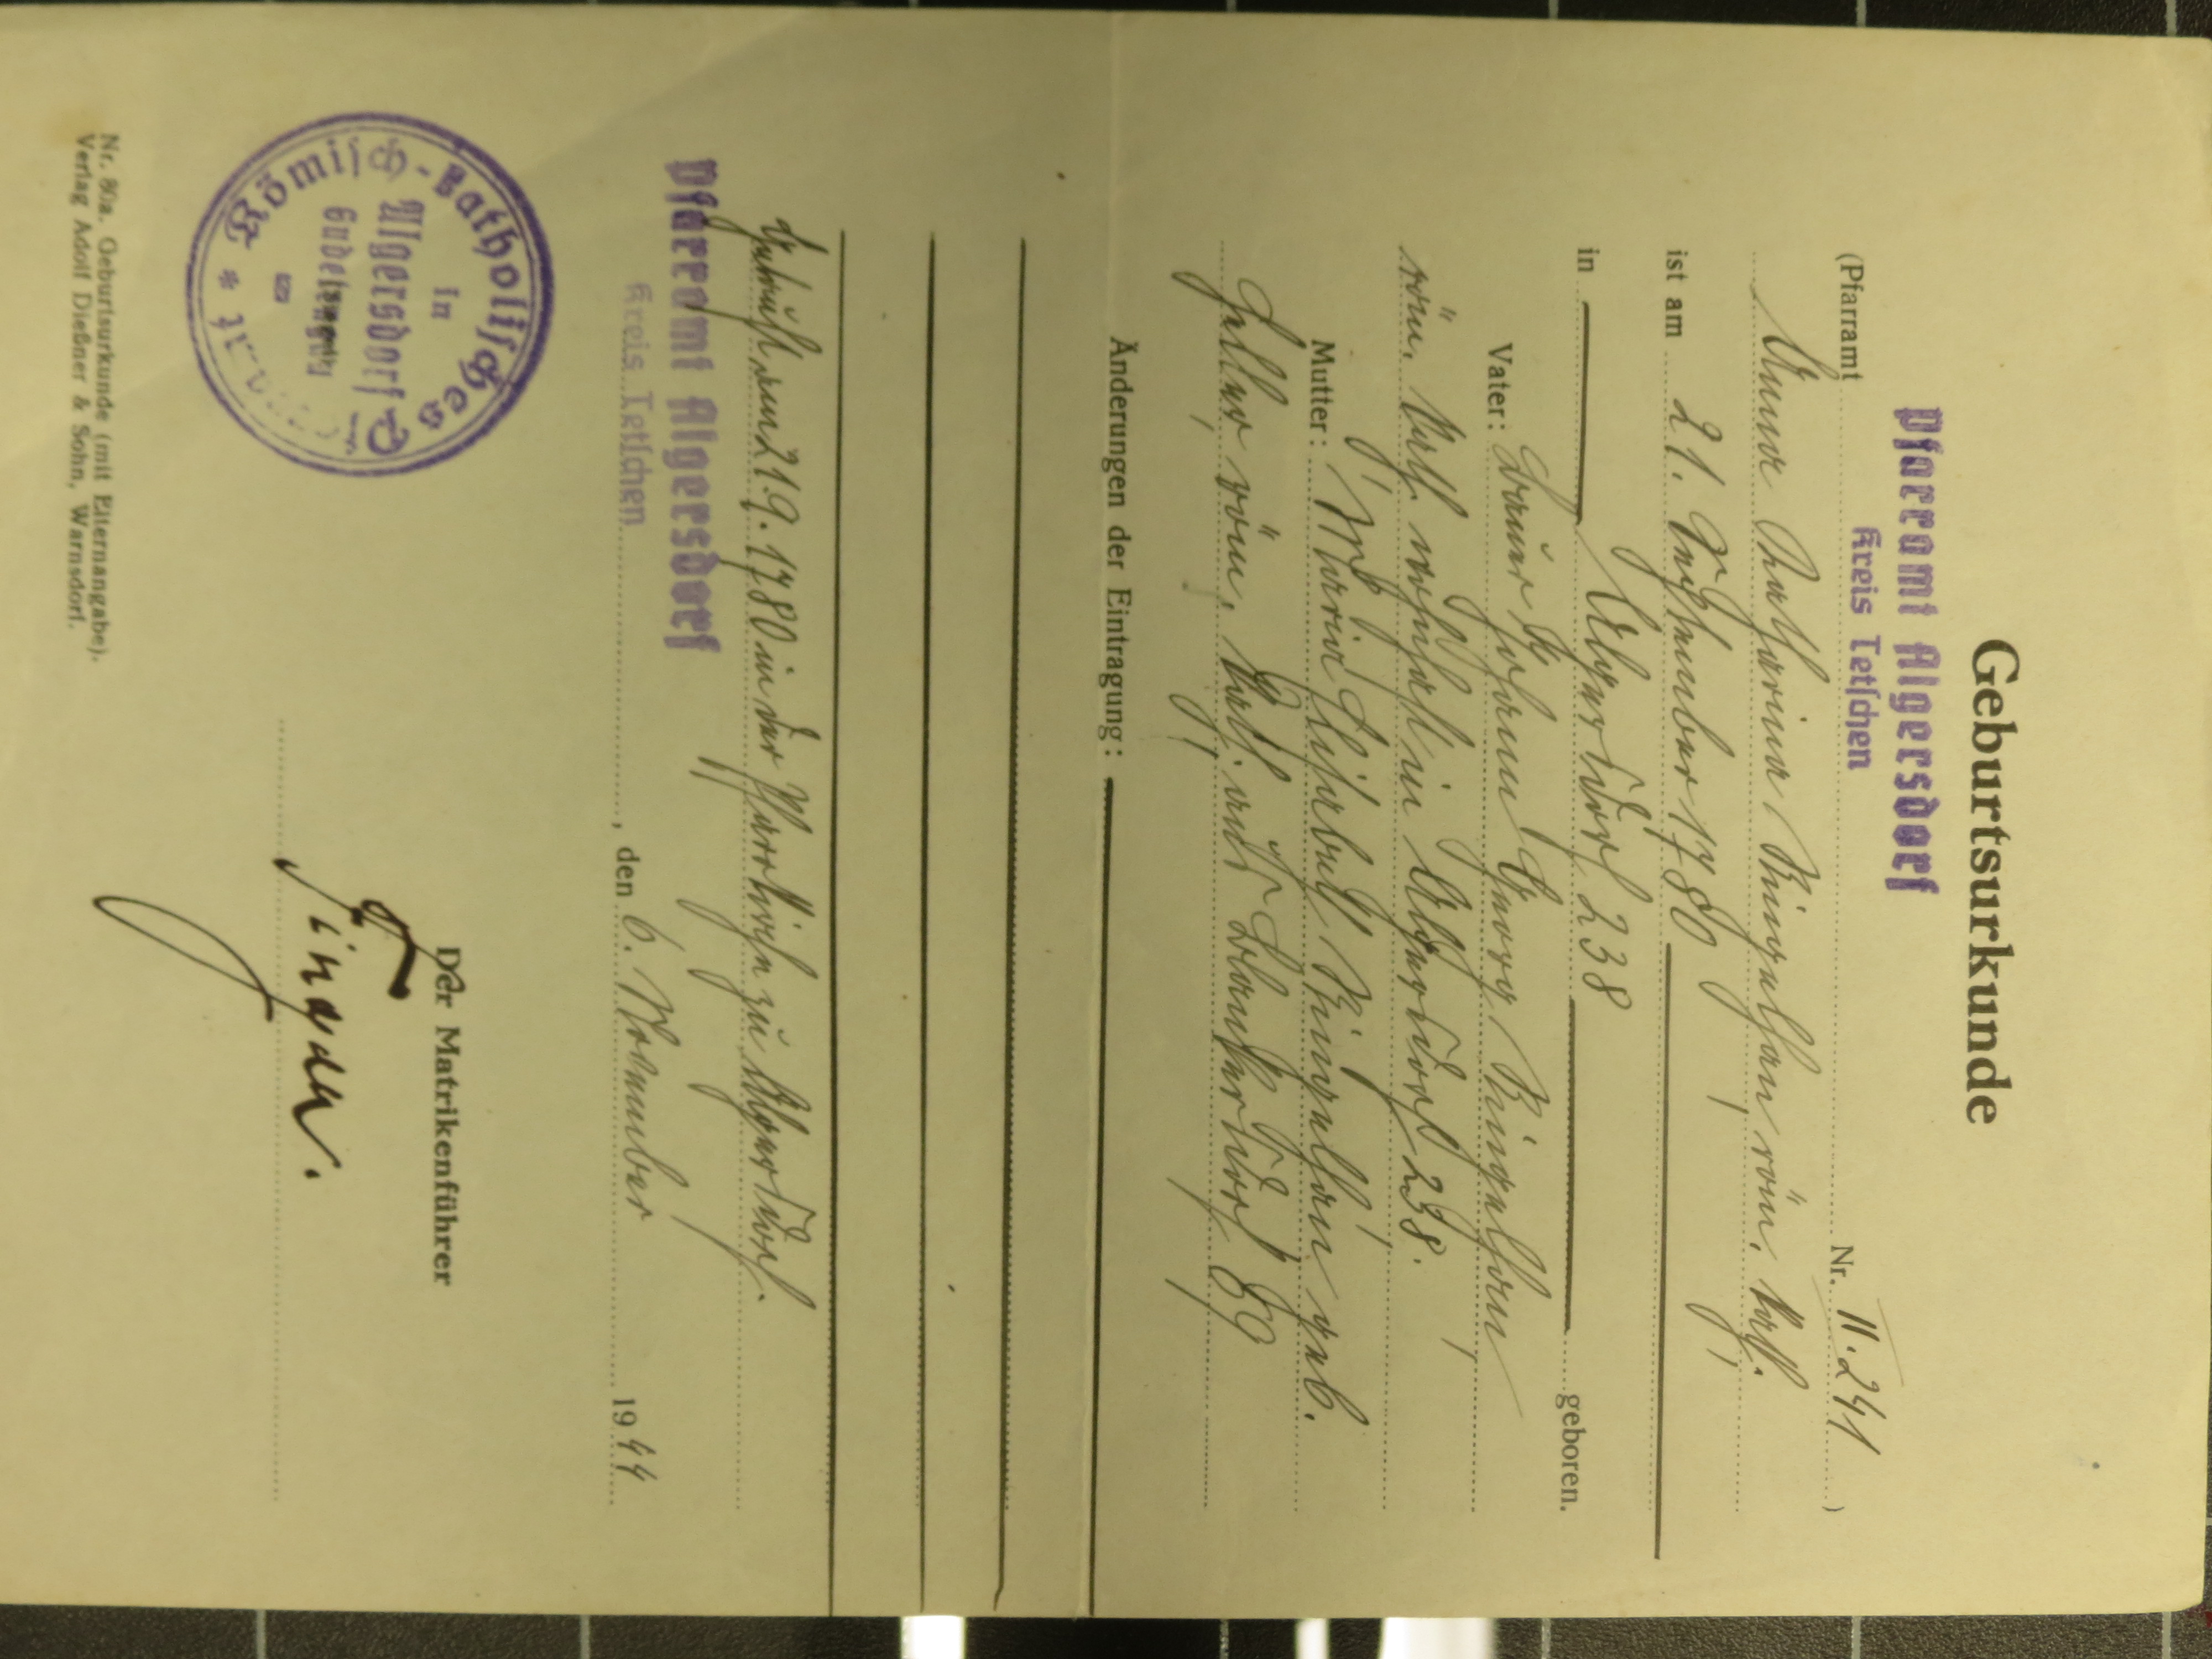 Geburtsurkunde
Pfarramt Algersdorf
Kreis Tetschen
(Pfarramt Nr. II. 241 )
Anna Katharina Ringelhan, röm. kath.,
ist am 21. September 1780
in Algersdorf 238 geboren.
Vater: Bauer Johann Georg Ringelhan,
röm. kath., wohnhaft in Algersdorf 238;
Mutter: Maria Elisabeth Ringelhan, geb.
Heller, röm. kath., aus Blankersdorf 69
Änderungen der Eintragung:
Getauft am 21.9.1780 in der Pfarrkirche zu Algersdorf.
Pfarramt Algersdorf
Kreis Tetschen , den 6. November 1944
Römisch-Katholisches Pfarramt
in
Algersdorf
Sudetengau
Der Matrikenführer
Nr. 80a. Geburtsurkunde (mit Elternangabe).
Verlag Adolf Dießner & Sohn, Warnsdorf.